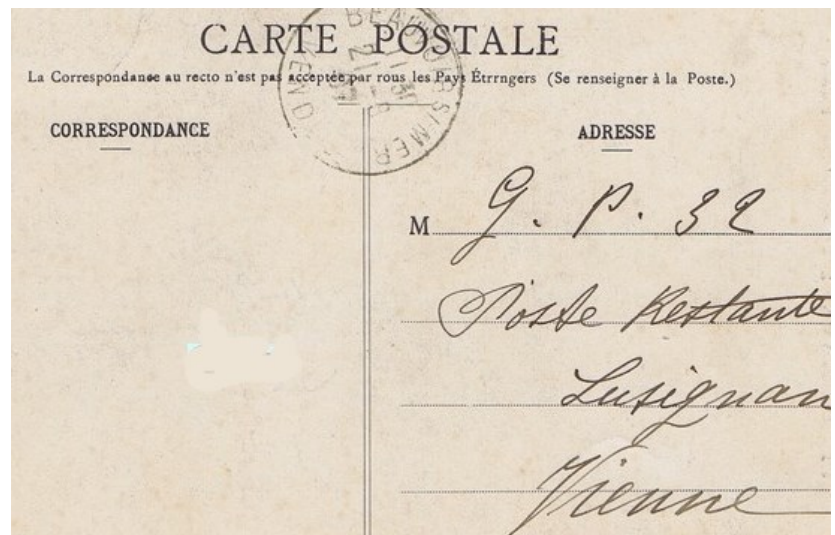 CARTE POSTALE
La Correspondance au recto n'est pas acceptée par rous les Pays Étrrngers (Se renseigner à la Poste.)
CORRESPONDANCE
ADRESSE
M G. P. 32
Poste Restante
Lusignan
Vienne
BEAUVOIR S/ MER
VENDÉE